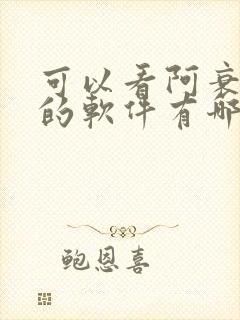 可以看阿衰
的軟件有哪
鲍恩喜